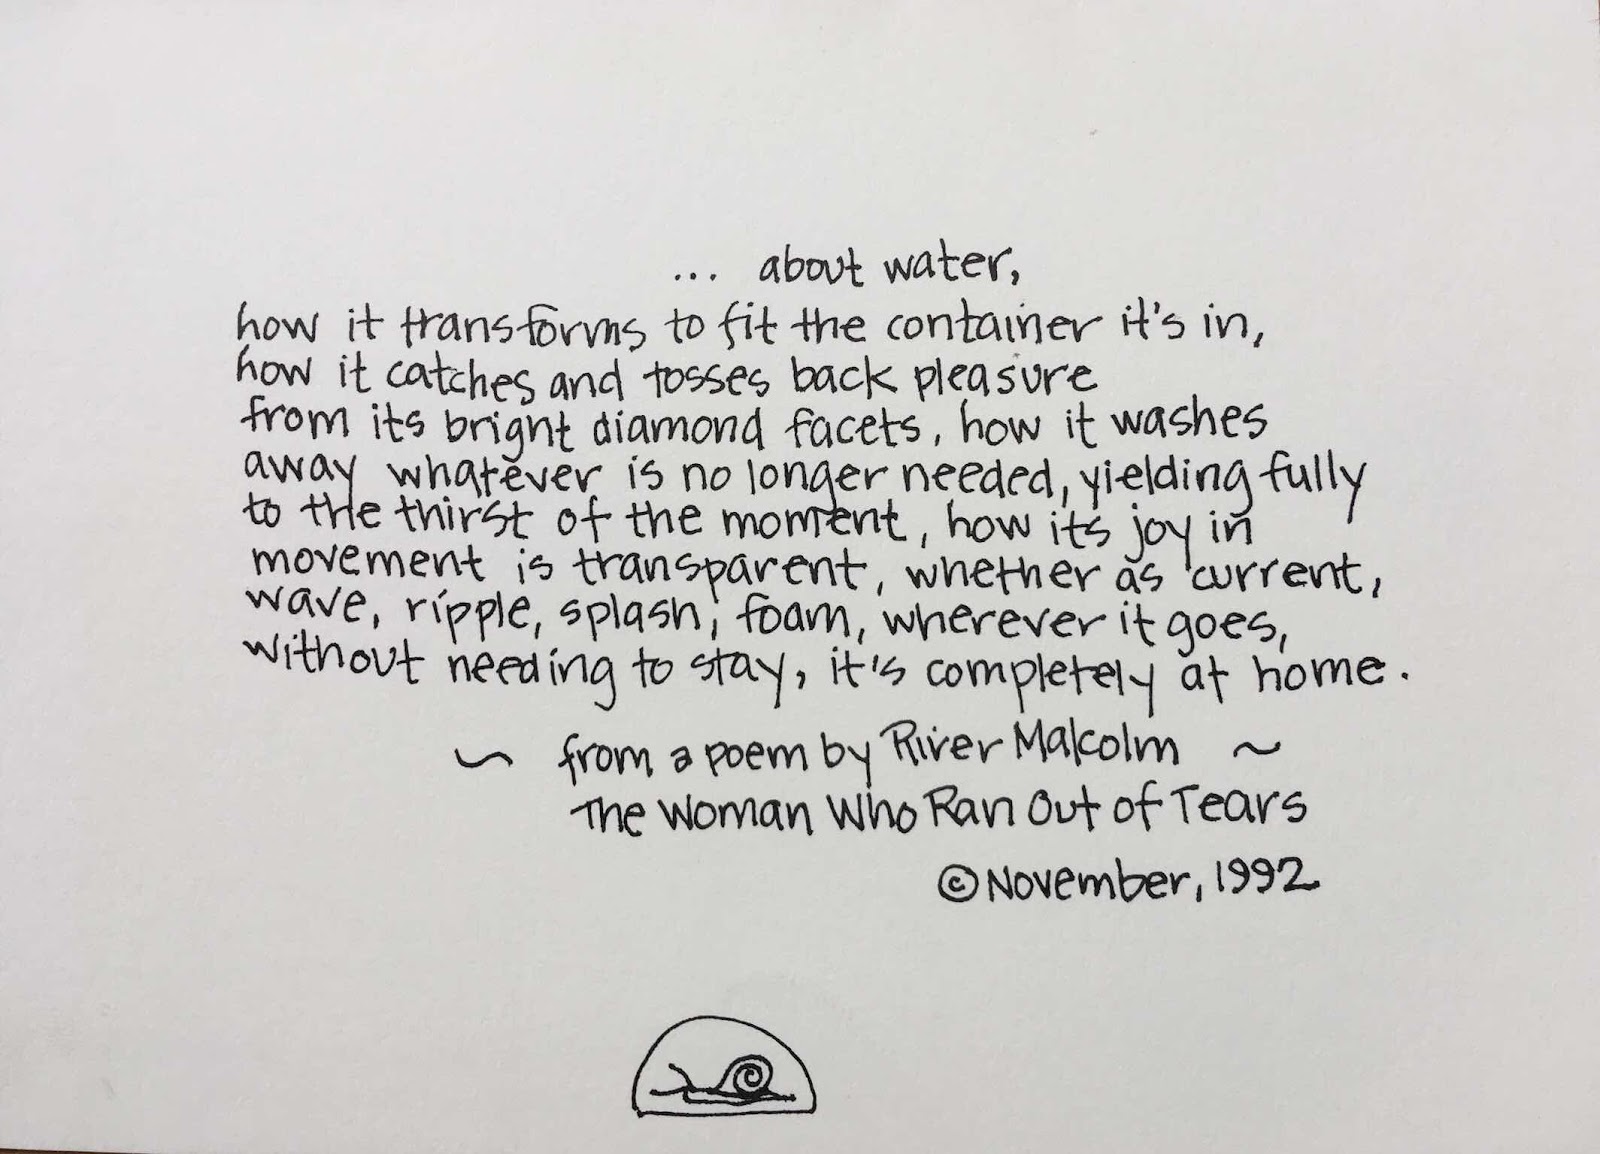 ... about water,
how it transforms to fit the container it's in,
how it catches and tosses back pleasure
from its bright diamond facets, how it washes
away whatever is no longer needed, yielding fully
to the thirst of the moment, how its joy in
movement is transparent, whether as current,
wave, ripple, splash, foam, wherever it goes,
without needing to stay, it's completely at home.
~ from a poem by River Malcolm ~
The Woman Who Ran Out of Tears
© November, 1992